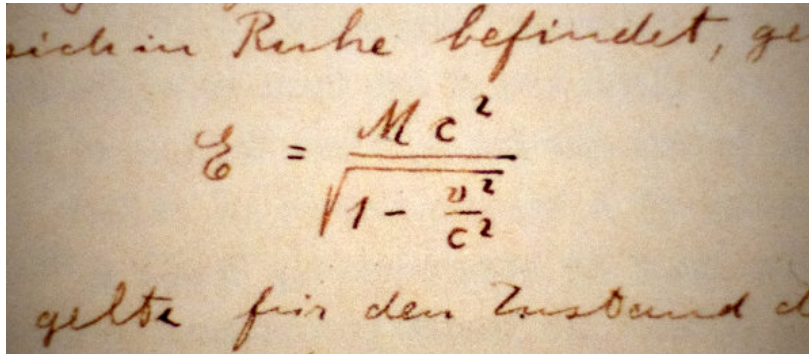 sich in Ruhe befindet, ge
ℰ = Mc² / √(1 - v²/c²)
gelte für den Zustand d